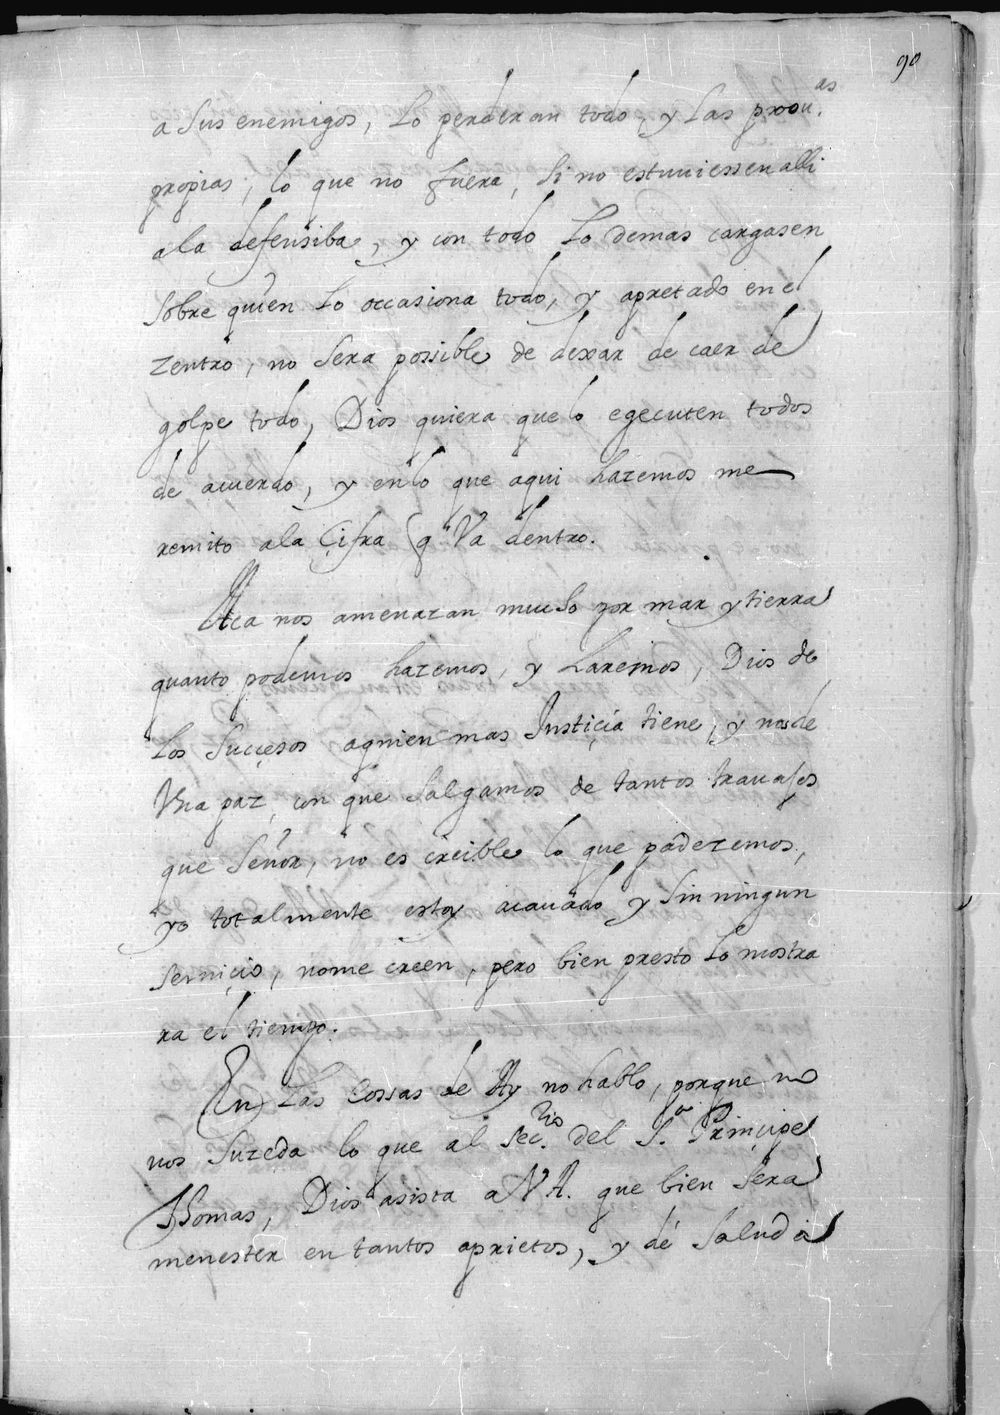 90
a sus enemigos, lo perderan todo, y las prou.as
propias, lo que no fuera, si no estuuiessen alli
a la defensiba, y con todo lo demas cargasen
sobre quien lo occasiona todo, y apretado en el
zentro, no sera possible de dexar de caer de
golpe todo, Dios quiera que lo egecuten todos
de acuerdo, y en lo que aqui hazemos me
remito a la Çifra q Va dentro.
Aca nos amenazan mucho por mar y tierra
quanto podemos hazemos, y haremos, Dios de
los Sucçesos aquien mas Justiçia tiene, y nos de
Vna paz, con que salgamos de tantos trauajos
que Señor, no es creible lo que padezemos,
yo totalmente estoy acauado y sin ningun
seruiçio, no me creen, pero bien presto lo mostra
ra el tiempo.
En las Cossas de Ay no hablo, porque no
nos suzeda lo que al sec.rio del S.or Prinçipe
Thomas, Dios asista a V A. que bien sera
menester en tantos aprietos, y dé salud a